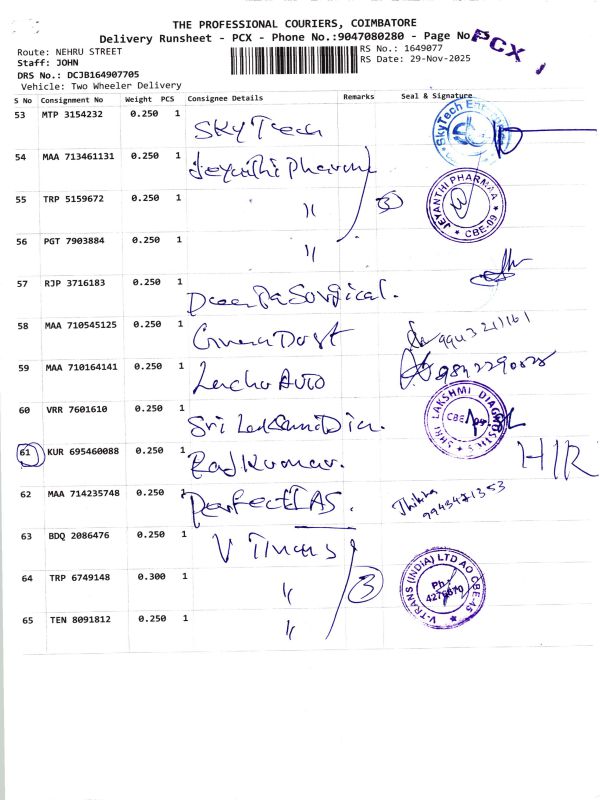 THE PROFESSIONAL COURIERS, COIMBATORE
Delivery Runsheet - PCX - Phone No.:9047080280 - Page No.:5
PCX 1
Route: NEHRU STREET
RS No.: 1649077
Staff: JOHN
RS Date: 29-Nov-2025
DRS No.: DCJB164907705
Vehicle: Two Wheeler Delivery
S No Consignment No Weight PCS Consignee Details Remarks Seal & Signature
53 MTP 3154232 0.250 1 Sky Tech
54 MAA 713461131 0.250 1 Jeyanthi Pharma
55 TRP 5159672 0.250 1 〃 3 JEYANTHI PHARMAA CBE-09
56 PGT 7903884 0.250 1 〃
57 RJP 3716183 0.250 1 Surgical.
58 MAA 710545125 0.250 1
59 MAA 710164141 0.250 1 Auto
60 VRR 7601610 0.250 1 Sri SHRI LAKSHMI DIAGNOSTICS CBE
61 KUR 695460088 0.250 1 Rajkumar. HIR
62 MAA 714235748 0.250 1 Perfect IAS.
63 BDQ 2086476 0.250 1 V Trans
64 TRP 6749148 0.300 1 〃 3 V-TRANS (INDIA) LTD AO CBE-AS Ph:
65 TEN 8091812 0.250 1 〃